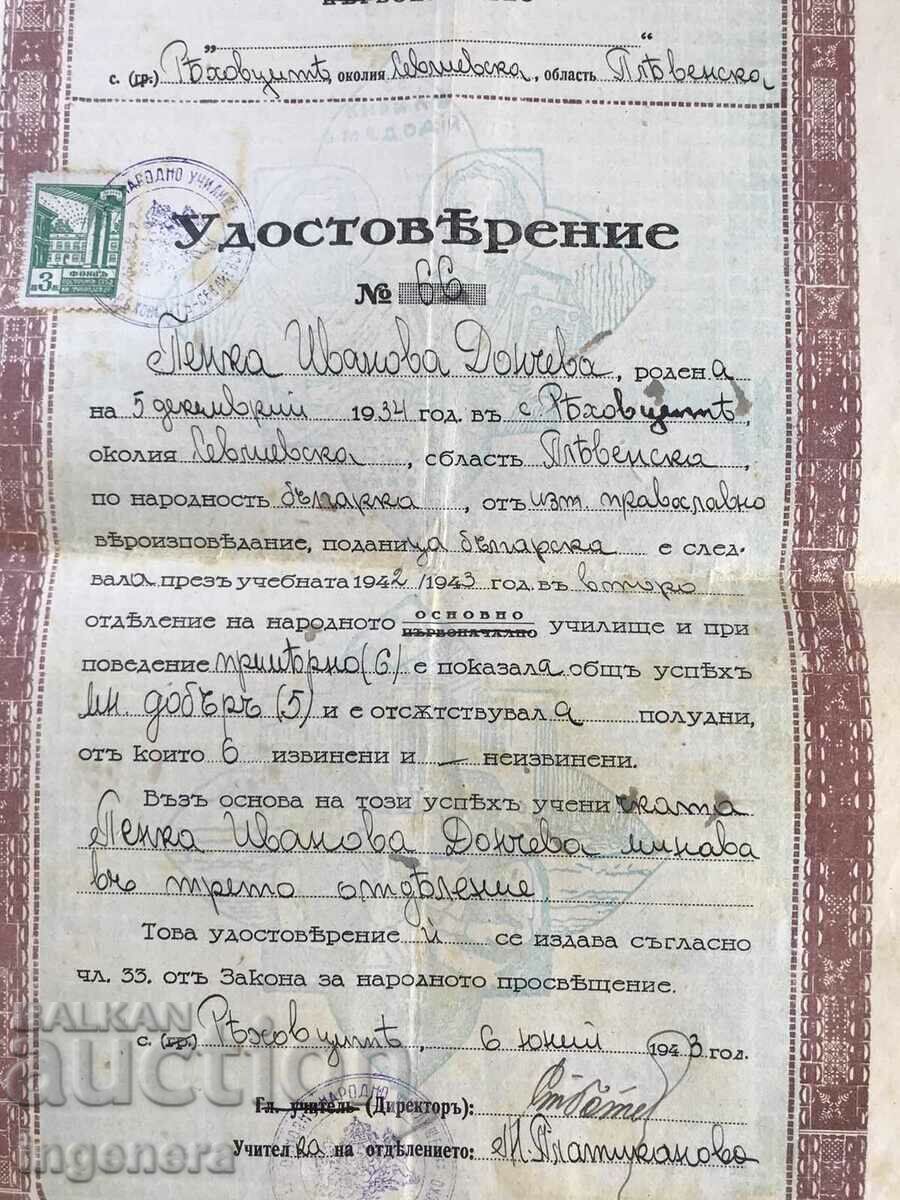 „ “
с. (гр.) Рѣховцитѣ, околия Севлиевска, область Плѣвенска
НАРОДНО УЧИЛИЩЕ
3 л.
ФОНДЪ
Удостовѣрение
№ 66
Пенка Иванова Дончева, родена
на 5 декемврий 1934 год. въ с. Рѣховцитѣ,
околия Севлиевска, область Плѣвенска,
по народность българка, отъ изт. православно
вѣроизповѣдание, поданица българска е след-
вала презъ учебната 1942/1943 год. въ второ
отдѣление на народното основно първоначално училище и при
поведение примѣрно (6) е показала общъ успѣхъ
мн. добъръ (5) и е отсѫтствувала полудни,
отъ които 6 извинени и — неизвинени.
Възъ основа на този успѣхъ ученичката
Пенка Иванова Дончева минава
въ трето отдѣление
Това удостовѣрение и се издава съгласно
чл. 33. отъ Закона за народното просвѣщение.
с. (гр.) Рѣховцитѣ, 6 юний 1943 год.
Гл. учитель (Директоръ):
Учителка на отдѣлението: М. Платиканова
BALKAN
auction
ingenera